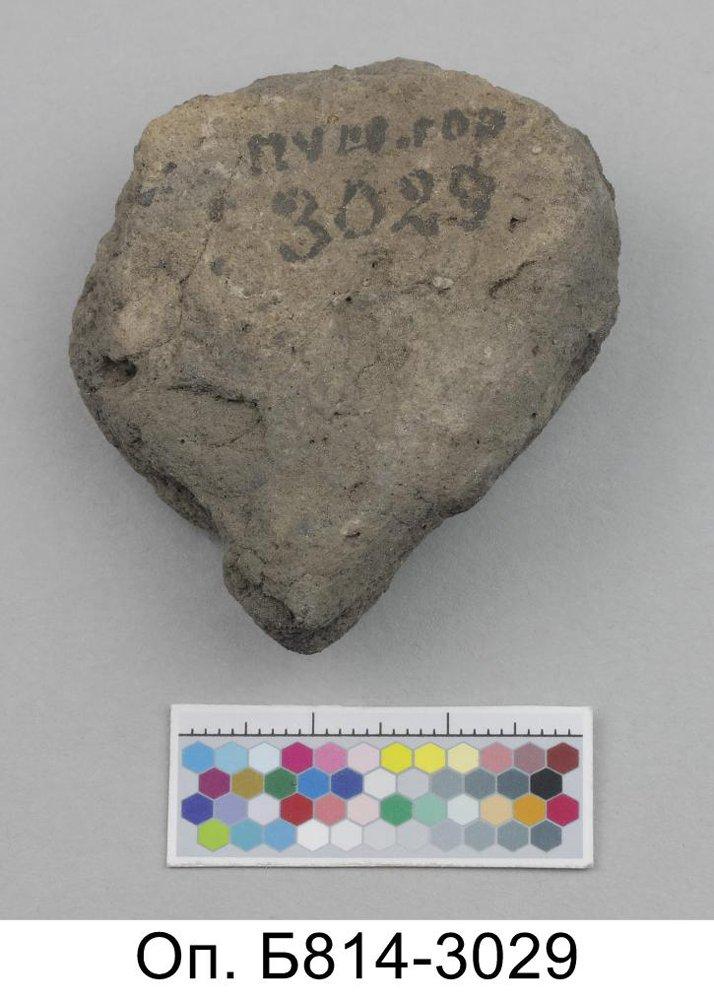 пуш.гор
3029
Оп. Б814-3029